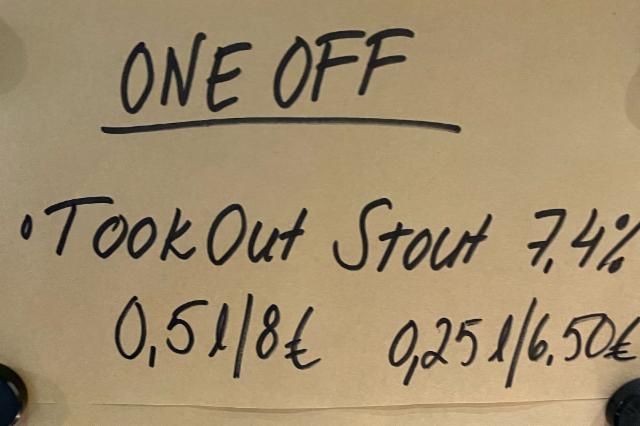 ONE OFF
• TookOut Stout 7,4%
0,5 l/8€ 0,25 l/6,50€